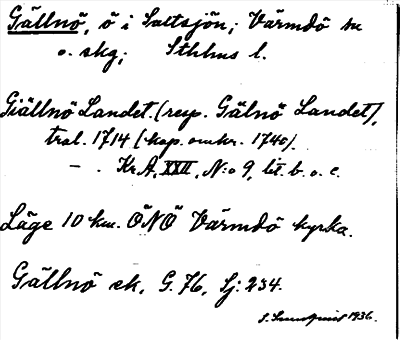 Gällnö, ö i Saltsjön; Värmdö sn
o. skg; Sthlms l.
Giällnö Landet. (resp. Gälnö Landet),
trol. 1714 (kop. omkr. 1740).
— . Kr A, XXII, N:o 9, lit. b. o. c.
Läge 10 km. ÖNÖ Värmdö kyrka.
Gällnö ek. G. 76, Sj: 234.
1936.